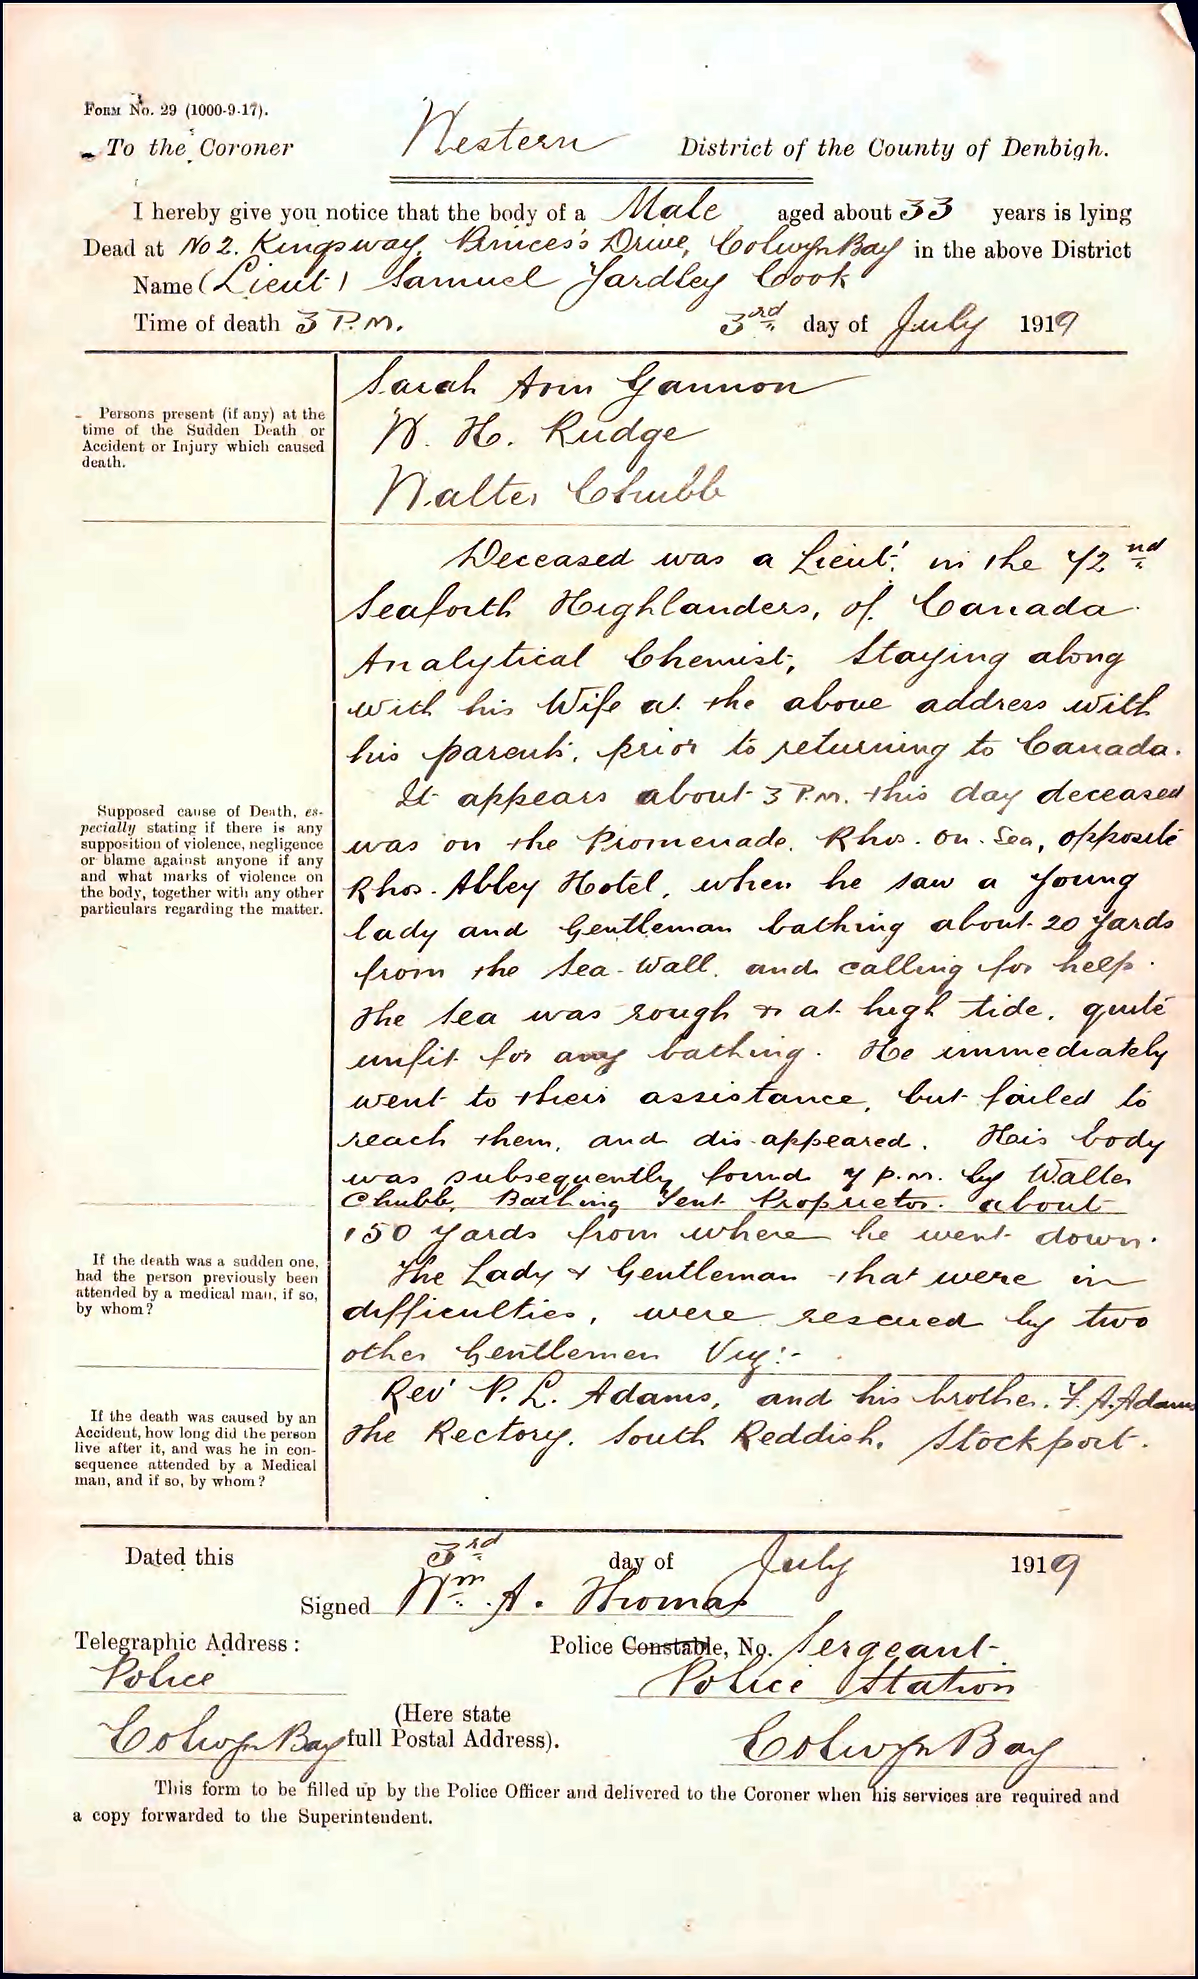 Form No. 29 (1000-9-17).
To the Coroner Western District of the County of Denbigh.
I hereby give you notice that the body of a Male aged about 33 years is lying
Dead at No 2. Kingsway, Princes's Drive, Colwyn Bay in the above District
Name (Lieut) Samuel Yardley Cook
Time of death 3 P.m. 3rd day of July 1919
Persons present (if any) at the
time of the Sudden Death or
Accident or Injury which caused
death.
Sarah Ann Gannon
W. H. Rudge
Walter Chubb
Supposed cause of Death, es-
pecially stating if there is any
supposition of violence, negligence
or blame against anyone if any
and what marks of violence on
the body, together with any other
particulars regarding the matter.
Deceased was a Lieut. in the 72nd
Seaforth Highlanders, of Canada
Analytical Chemist, Staying along
with his Wife at the above address with
his parents, prior to returning to Canada.
It appears about 3 P.m. this day deceased
was on the Promenade, Rhos-on-Sea, opposite
Rhos-Abbey Hotel, when he saw a Young
lady and Gentleman bathing about 20 Yards
from the Sea-Wall, and calling for help.
The Sea was rough & at high tide, quite
unfit for any bathing. He immediately
went to their assistance, but failed to
reach them, and dis-appeared. His body
was subsequently found 7 p.m. by Walter
Chubb, Bathing Tent Proprietor. about
150 Yards from where he went down.
The Lady & Gentleman that were in
difficulties, were rescued by two
other Gentlemen Viz:-
Rev P. L. Adams, and his brother, F. A. Adams
The Rectory, South Reddish, Stockport.
If the death was a sudden one,
had the person previously been
attended by a medical man, if so,
by whom?
If the death was caused by an
Accident, how long did the person
live after it, and was he in con-
sequence attended by a Medical
man, and if so, by whom?
Dated this 3rd day of July 1919
Signed Wm. A. Thomas
Telegraphic Address: Police Constable, No. Sergeant
Police Police Station
(Here state
Colwyn Bay full Postal Address). Colwyn Bay
This form to be filled up by the Police Officer and delivered to the Coroner when his services are required and
a copy forwarded to the Superintendent.